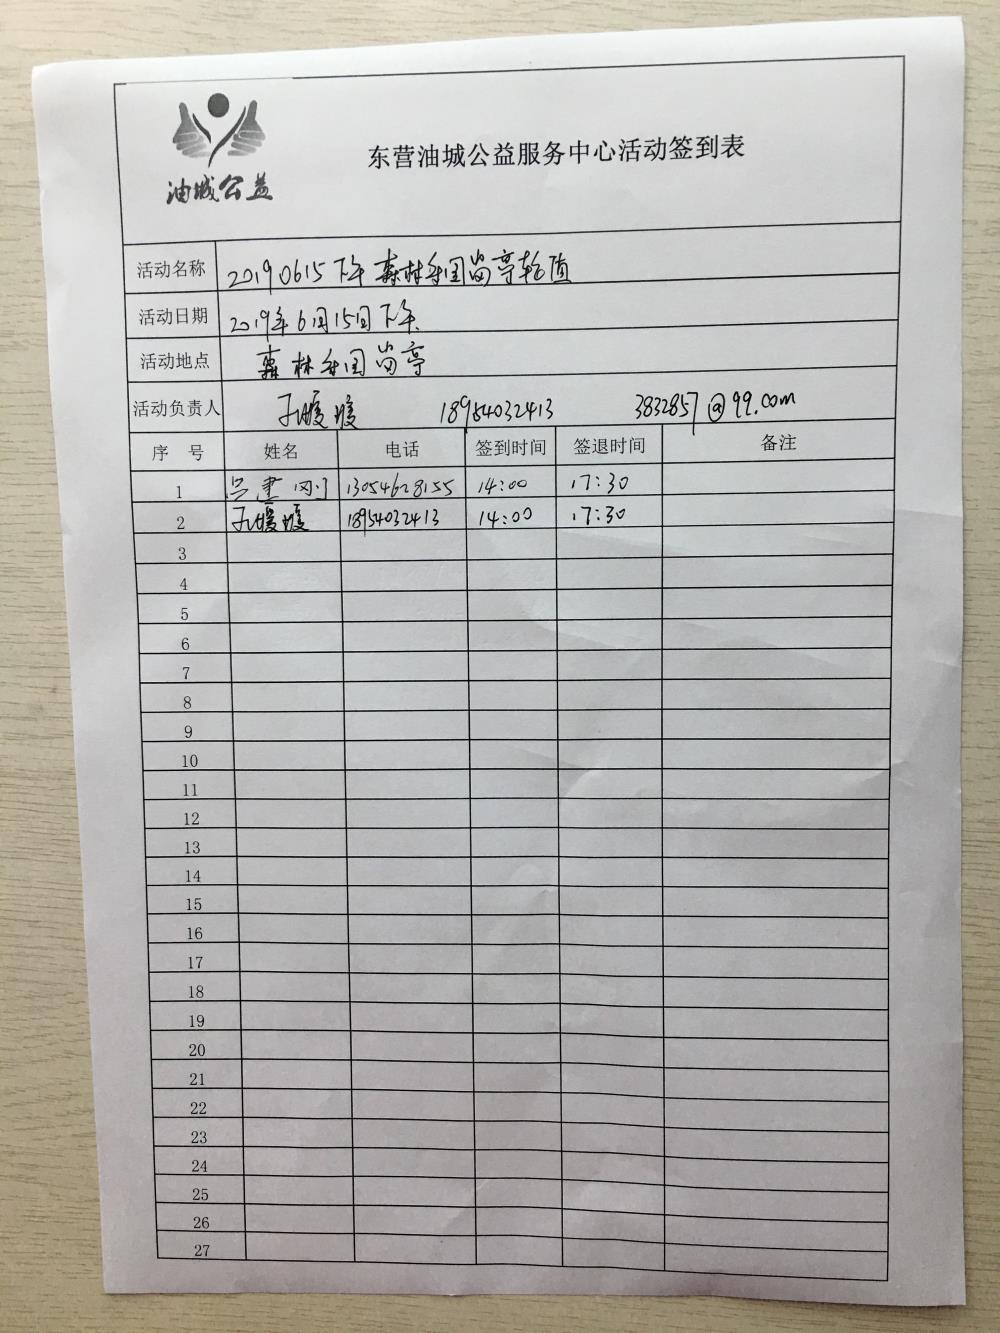 油城公益
东营油城公益服务中心活动签到表
活动名称 20190615下午森林乐园岗亭轮值
活动日期 2019年6月15日下午
活动地点 森林乐园岗亭
活动负责人 孔媛媛 18954032413 3832857@99.com
序 号 姓名 电话 签到时间 签退时间 备注
1 吕建刚 13054628155 14:00 17:30
2 孔媛媛 18954032413 14:00 17:30
3
4
5
6
7
8
9
10
11
12
13
14
15
16
17
18
19
20
21
22
23
24
25
26
27